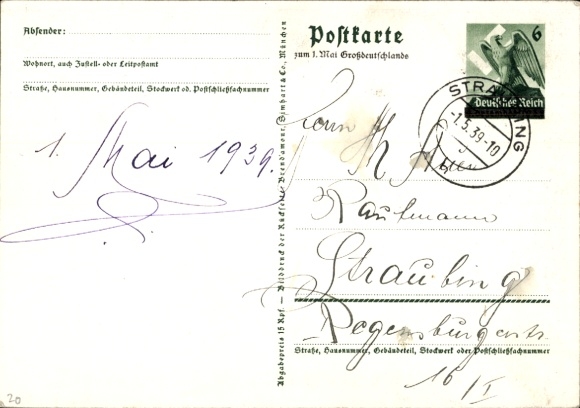 Absender:
Wohnort, auch Zustell- oder Leitpostamt
Straße, Hausnummer, Gebäudeteil, Stockwerk od. Postschließfachnummer
1. Mai 1939.
20
Abgabepreis 15 Rpf. — Bilddruck der Rückseite: Brend'amour, Simhart & Co., München
Postkarte
zum 1. Mai Großdeutschlands
6
Deutsches Reich
STRAUBING
-1.5.39.-10
Herrn
Kaufmann
Straubing
Regensburgerstr.
Straße, Hausnummer, Gebäudeteil, Stockwerk oder Postschließfachnummer
16/I